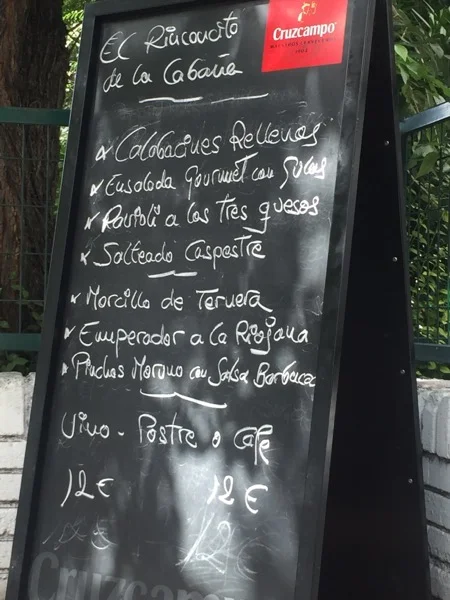 Cruzcampo
El Rinconcito
de la Cabaña
Calabacines Rellenos
Ensalada Gourmet con Gulas
Ravioli a los Tres quesos
Salteado Caspestre
Morcillo de Ternera
Emperador a la Riojana
Pinchos Moruno con Salsa Barbacoa
Vino - Postre o Café
12€ 12€
12€
Cruzcampo